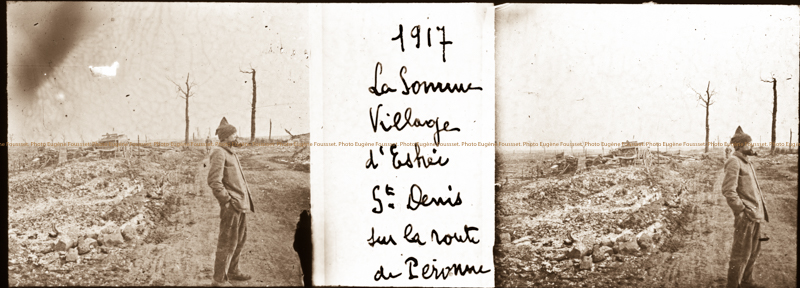 1917
La Somme
Village
d'Eshéi
St Denis
sur la route
de Péronne
Photo Eugène Fousset. Photo Eugène Fousset. Photo Eugène Fousset. Photo Eugène Fousset. Photo Eugène Fousset. Photo Eugène Fousset. Photo Eugène Fousset. Photo Eugène Fousset.